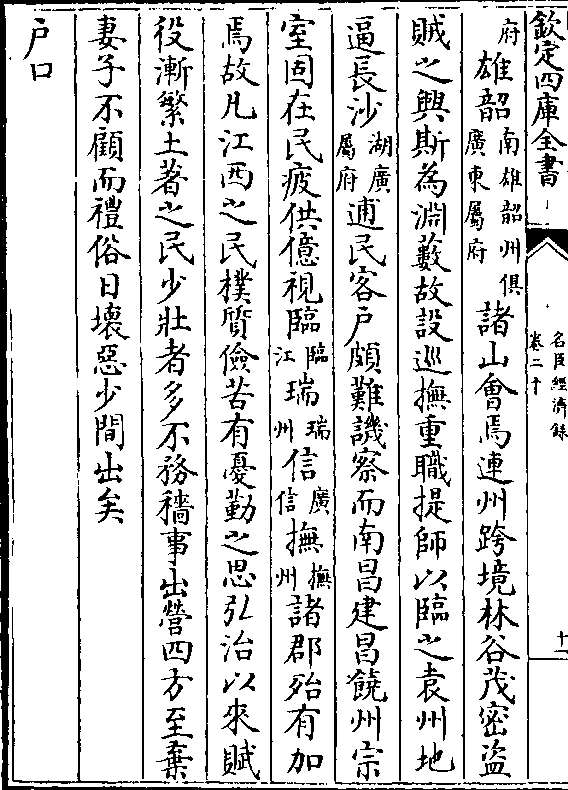 欽定四庫全書
名臣經濟錄
卷二十
十一
府雄韶南雄韶州俱廣東屬府諸山會焉連州跨境林谷茂密盜
賊之興斯為淵藪故設巡撫重職提師以臨之袁州地
逼長沙湖廣屬府逋民客户頗難譏察而南昌建昌饒州宗
室固在民疲供億視臨臨江瑞瑞州信廣信撫撫州諸郡殆有加
焉故凡江西之民樸質儉苦有憂勤之思弘治以來賦
役漸繁土著之民少壯者多不務穡事出營四方至棄
妻子不顧而禮俗日壞惡少間出矣
户口